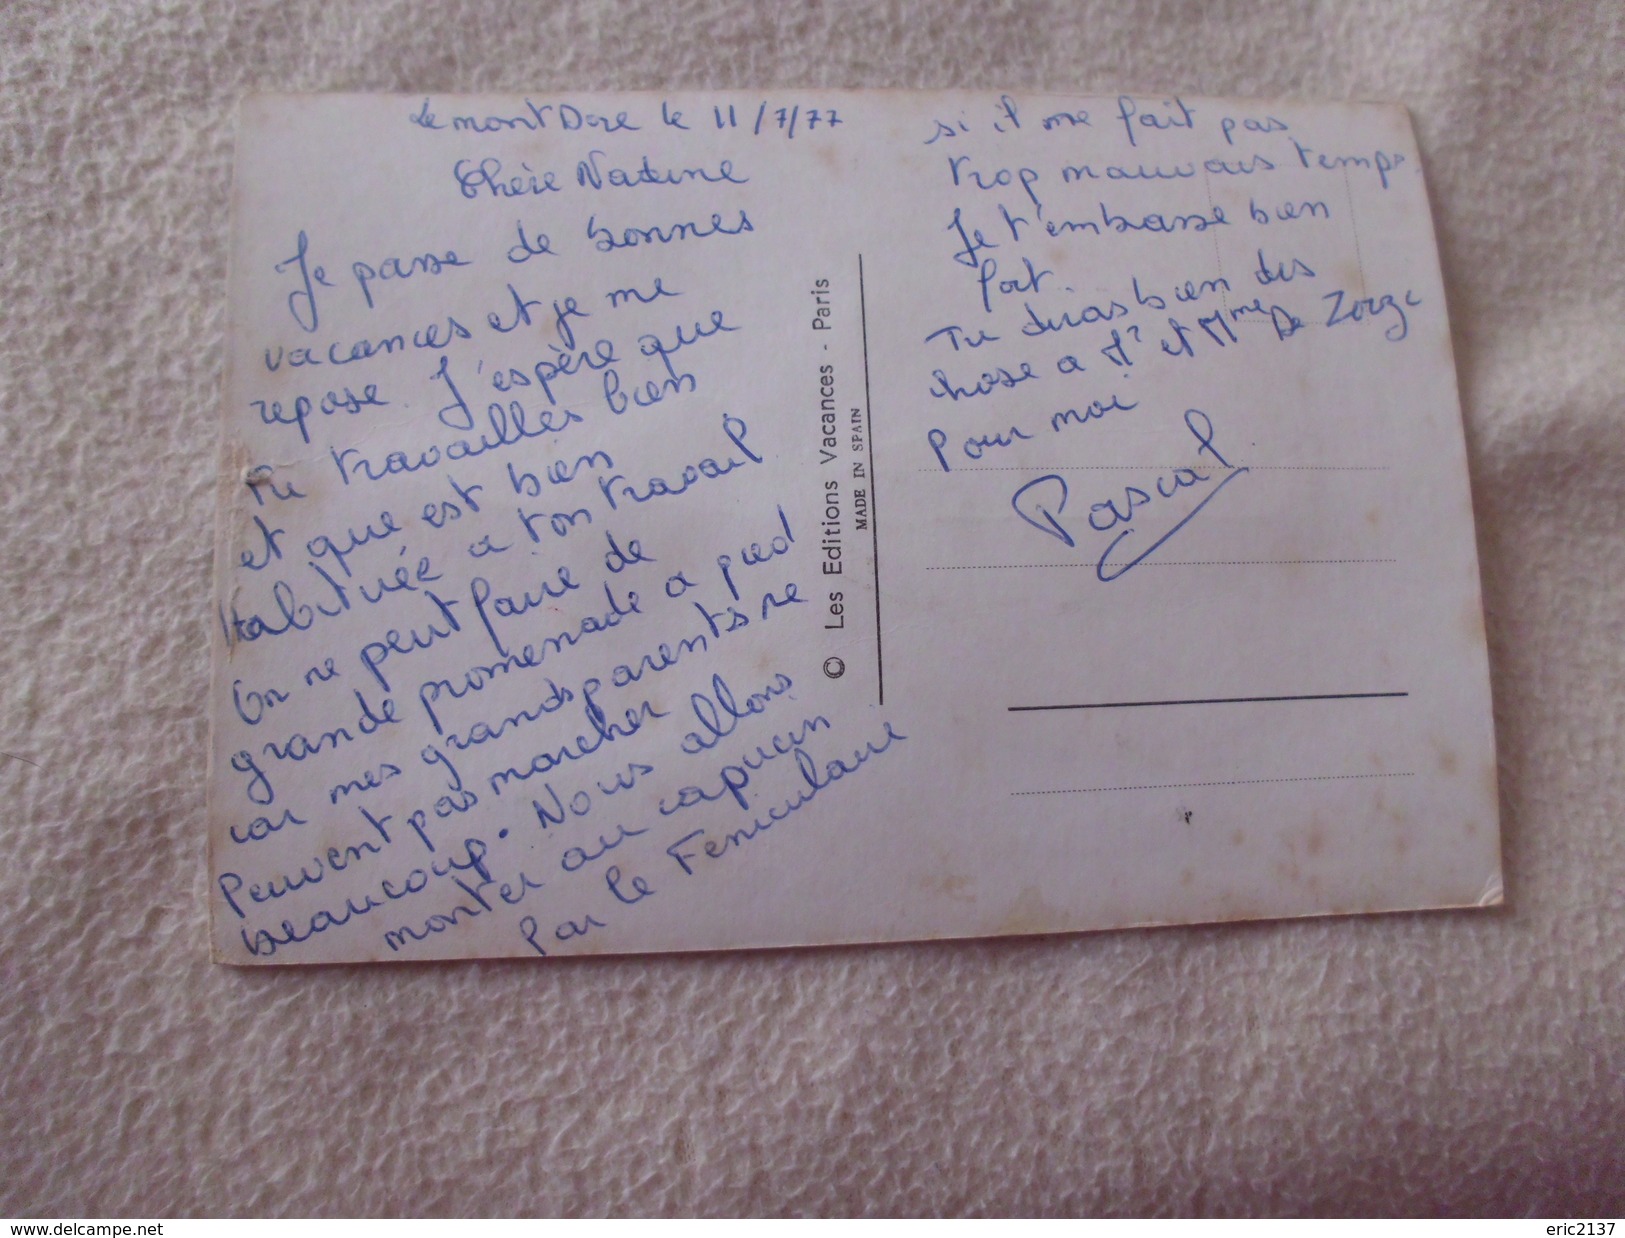 Le mont Dore le 11/7/77
Chère Nadine
Je passe de bonnes
vacances et je me
repose. J'espère que
tu travailles bien
et que est bien
Habituée a ton travail
On ne peut faire de
grande promenade a pied
car mes grands parents ne
peuvent pas marcher
beaucoup. Nous allons
monter au capucin
par le Feniculaire
si il me fait pas
trop mauvais temps
Je t'embrasse bien
fort.
Tu diras bien des
chose a Mr et Mme De Zorzi
Pour moi
Pascal
© Les Editions Vacances - Paris
MADE IN SPAIN
www.delcampe.net
eric2137